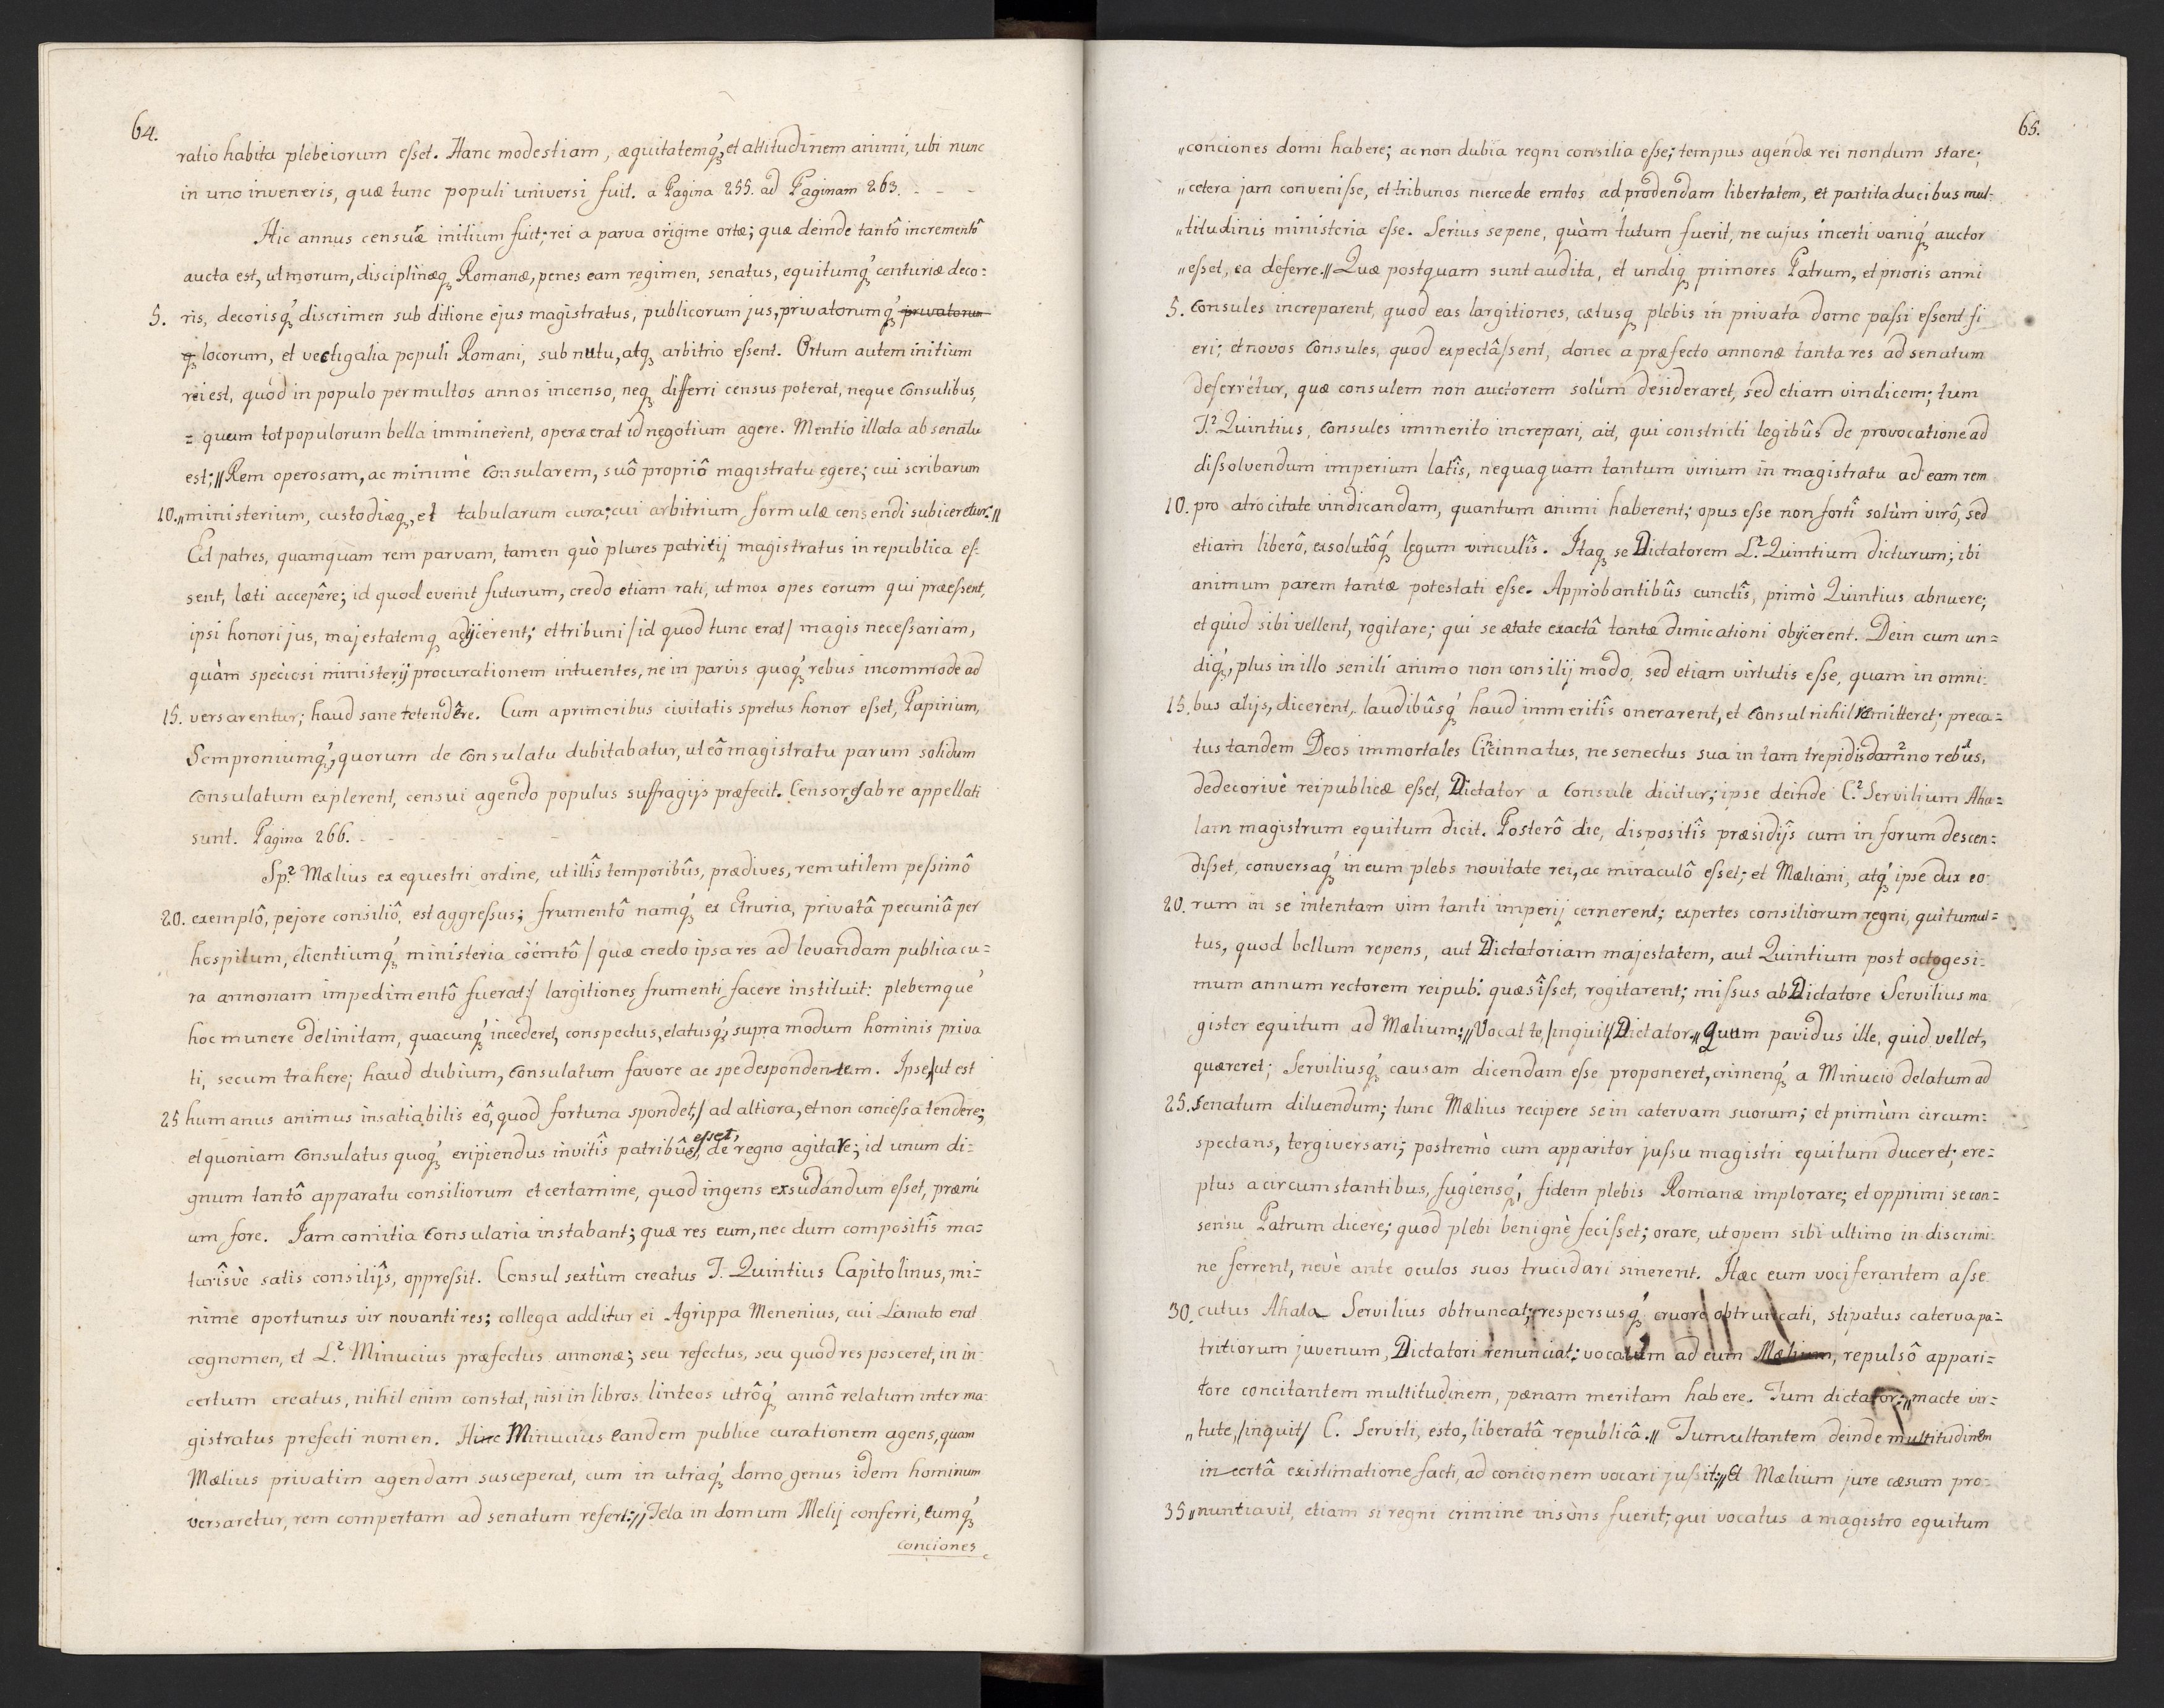 64.
ratio habita plebeiorum eſset. Hanc modestiam, æquitatemq́ꝫ, et altitudinem animi, ubi nunc
in uno inveneris, quæ tunc populi universi fuit. a Pagina 255. ad Paginam 263. - - -
Hic annus censuræ initium fuit; rei a parva origine ortæ; quæ deinde tantô incrementô
aucta est, ut morum, disciplinæqꝫ Romanæ, penes eam regimen, senatus, equitumq́ꝫ centuriæ deco:
5. ris, decorisq́ꝫ discrimen sub ditione ejus magistratus, publicorum jus, privatorumq́ꝫ privatorum
qꝫ locorum, et vectigalia populi Romani, sub nutu, atqꝫ arbitrio eſsent. Ortum autem initium
rei est, quòd in populo per multos annos incenso, neqꝫ differri census poterat, neque Consulibus,
= quum tot populorum bella imminerent, operæ erat id negotium agere. Mentio illata ab senatu
est; „Rem operosam, ac minimè Consularem, suô propriô magistratu egere; cui scribarum
10. „ministerium, custodiæqꝫ, et tabularum cura; cui arbitrium formulæ censendi subiceretur.„
Et patres, quamquam rem parvam, tamen quò plures patritij magistratus in republica eſ:
sent, læti accepêre; id quod evenit futurum, credo etiam rati, ut mox opes eorum qui præeſsent,
ipsi honori jus, majestatemqꝫ adijcerent; et tribuni /id quod tunc erat/ magis neceſsariam,
quàm speciosi ministerij procurationem intuentes, ne in parvis quoq́ꝫ rebus incommode ad
15. versarentur; haud sane tetendêre. Cum a primoribus civitatis spretus honor eſset, Papirium,
Semproniumq́ꝫ, quorum de Consulatu dubitabatur, ut eô magistratu parum solidum
Consulatum explerent, censui agendo populus suffragijs præfecit. Censores ab re appellati
sunt. Pagina 266. - - - - - -
Sp.ꝰ Mælius ex equestri ordine, ut illîs temporibûs, prædives, rem utilem peſsimô
20. exemplô, pejore consiliô est aggreſsus; frumentô namq́ꝫ ex Etruria, privatâ pecuniâ per
hospitum, clientiumq́ꝫ ministeria coëmtô /quæ credo ipsa res ad levandam publica cu=
ra annonam impedimentô fuerat:/ largitiones frumenti facere instituit: plebemque
hoc munere delinitam, quacunq́ꝫ incederet, conspectus, elatusq́ꝫ supra modum hominis priva
ti, secum trahere; haud dubium, Consulatum favore ac spe despondentem. Ipse /ut est
25 humanus animus insatiabilis eô, quod fortuna spondet,/ ad altiora, et non conceſsa tendere;
et quoniam Consulatus quoq́ꝫ eripiendus invitîs patribûs esset, de regno agitare; id unum di=
gnum tantô apparatu consiliorum et certamine, quod ingens exsudandum eſset, præmi
um fore. Jam comitia Consularia instabant; quæ res eum, nec dum compositîs ma=
turîsvè satis consilijs, oppreſsit. Consul sextùm creatus T. Quintius Capitolinus, mi=
nime oportunus vir novanti res; collega additur ei Agrippa Menenius, cui Lanato erat
cognomen, et L.ꝰ Minucius præfectus annonæ; seu refectus, seu quod res posceret, in in-
certum creatus, nihil enim constat, nisi in libros linteos utrôq́ꝫ annô relatum inter ma-
gistratus prefecti nomen. Hinc Minucius eandem publice curationem agens, quam
Mælius privatim agendam susceperat, cum in utraq́ꝫ domo genus idem hominum
versaretur, rem compertam ad senatum refert: „Tela in domum Melij conferri, eumq́ꝫ
conciones
65.
„conciones domi habere; ac non dubia regni consilia eſse; tempus agendæ rei nondum stare;
„cetera jam conveniſse, et tribunos mercede emtos ad prodendam libertatem, et partita ducibus mul-
„titudinis ministeria eſse. Serius se pene, quàm tutum fuerit, ne cujus incerti vaniq́ꝫ auctor
„eſset, ea deferre.„ Quæ postquam sunt audita, et undiqꝫ primores Patrum, et prioris anni
5. Consules increparent, quod eas largitiones, cætusqꝫ plebis in privata domo paſsi eſsent fi
eri; et novos Consules, quod expectâſsent, donec a præfecto annonæ tanta res ad senatum
deferretur, quæ consulem non auctorem solùm desideraret, sed etiam vindicem; tum
T.ꝰ Quintius, Consules immerito increpari, ait, qui constricti legibûs de provocatione ad
diſsolvendum imperium latîs, nequaquam tantum virium in magistratu ad eam rem
10. pro atrocitate vindicandam, quantum animi haberent; opus eſse non forti solùm virô, sed
etiam liberô, exsolutôq́ꝫ legum vinculîs. Itaqꝫ se Dictatorem L.ꝰ Quintium dicturum; ibi
animum parem tantæ potestati eſse. Approbantibûs cunctîs, primò Quintius abnuere;
et quid sibi vellent, rogitare; qui se ætate exactâ tantæ dimicationi obijcerent. Dein cum un=
diq́ꝫ, plus in illo senili animo non consilij modo, sed etiam virtutis eſse, quam in omni-
15. bus alijs, dicerent, laudibûsq́ꝫ haud immeritîs onerarent, et Consul nihil remitteret; preca=
tus tandem Deos immortales Cincinnatus, ne senectus sua in tam trepidis damno rebus,
dedecorivè reipublicæ eſset, Dictator a Consule dicitur; ipse deinde C.ꝰ Servilium Aha=
lam magistrum equitum dicit. Posterô die, dispositîs præsidijs cum in forum descen=
diſset, conversaq́ꝫ in eum plebs novitate rei, ac miraculô eſset; et Mæliani, atq́ꝫ ipse dux eo-
20. rum in se intentam vim tanti imperij cernerent; expertes consiliorum regni, qui tumul=
tus, quod bellum repens, aut Dictatoriam majestatem, aut Quintium post octogesi-
mum annum rectorem reipub: quæsîſset, rogitarent; miſsus ab Dictatore Servilius ma
gister equitum ad Mælium: „Vocat te, /inquit/ Dictator.„ Quum pavidus ille, quid vellet,
quæreret; Serviliusq́ꝫ causam dicendam eſse proponeret, crimenq́ꝫ a Minucio delatum ad
25. Senatum diluendum; tunc Mælius recipere se in catervam suorum; et primùm circum=
spectans, tergiversari; postremò cum apparitor juſsu magistri equitum duceret; ere=
ptus a circumstantibus, fugiensq́ꝫ, fidem plebis Romanæ implorare; et opprimi se con=
sensu Patrum dicere; quod plebi benignè feciſset; orare, ut opem sibi ultimo in discrimi-
ne ferrent, nevè ante oculos suos trucidari sinerent. Hæc eum vociferantem aſse-
30. cutus Ahala Servilius obtruncat; respersusq́ꝫ cruore obtruncati, stipatus caterva pa=
tritiorum juvenum, Dictatori renunciat; vocatum ad eum Mælium, repulsô appari=
tore concitantem multitudinem, pænam meritam habere. Tum dictator: „macte vir=
„tute, /inquit/ C. Servili, esto, liberatâ republicâ.„ Tumultantem deinde multitudinem
incertâ existimatione facti, ad concionem vocari juſsit: „Et Mælium jure cæsum pro-
35 „nuntiavit, etiam si regni crimine insòns fuerit; qui vocatus a magistro equitum